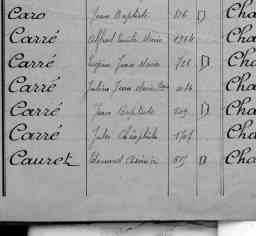 Caro Jean Baptiste 216 D Cha
Carré Alfred Emile Marie 1944 Cha
Carré Eugène Jean Marie 728 D Cha
Carré Julien Jean Marie Cha
Carré Jean Baptiste 529 D Cha
Carré Jules Théophile 1767 Cha
Cauret Edmond 857 D Cha